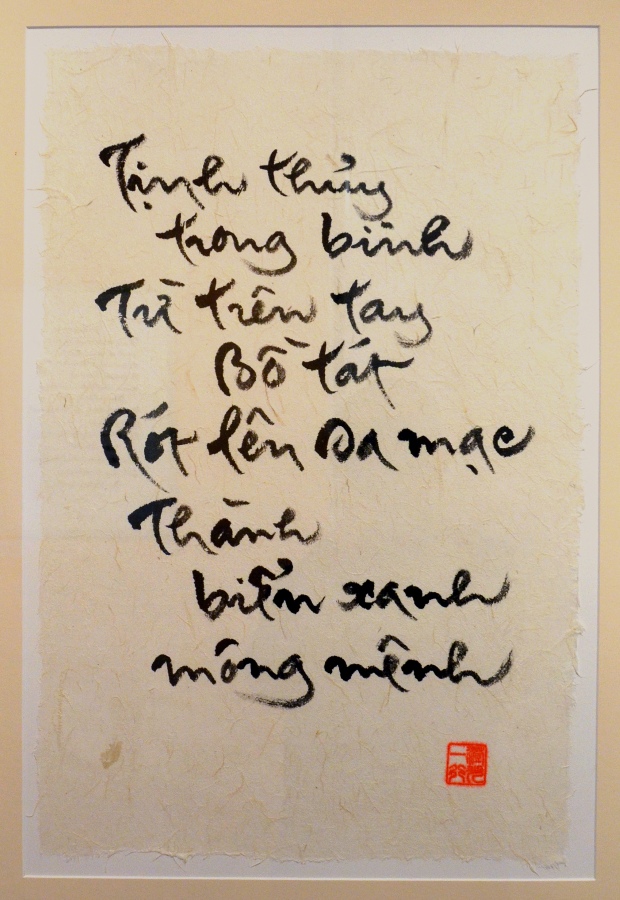 Tịnh thủy
trong bình
Từ trên tay
Bồ tát
Rót lên Sa mạc
Thành
biển xanh
mông mênh